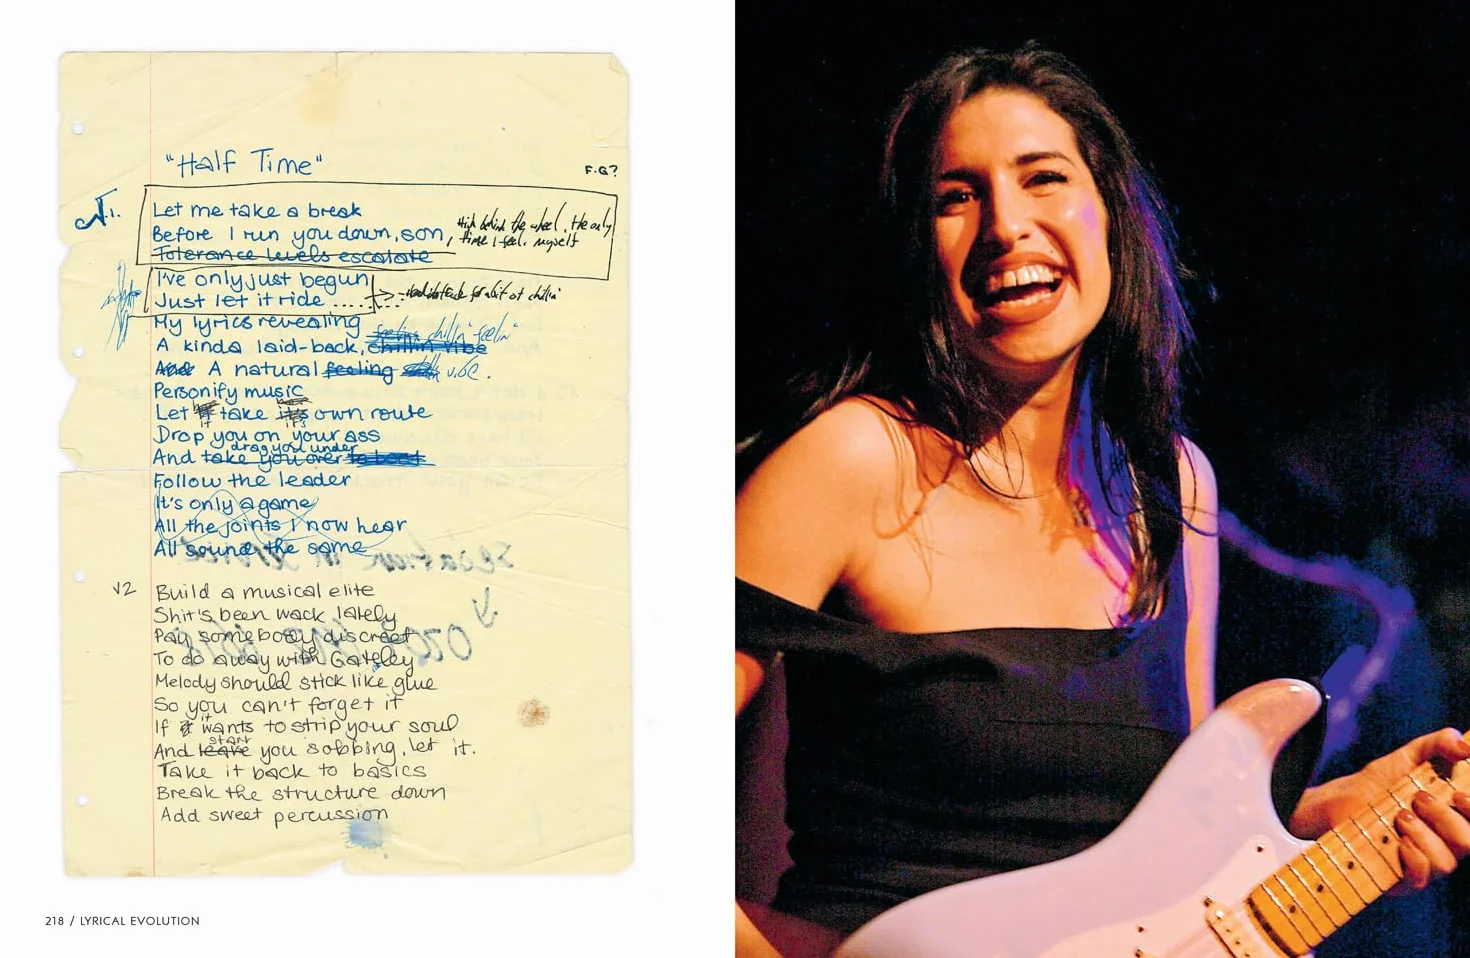 "Half Time"
F.G?
V.1.
Let me take a break
Before I run you down, son,
High behind the wheel, the only
time I feel myself
Tolerance levels escalate
I've only just begun
Just let it ride ....
for a bit of chillin'
My lyrics revealing
feelin' chillin' feelin'
A kinda laid-back, chillin vibe
And A natural feeling vibe.
Personify music
Let it take it's own route
it it's
Drop you on your ass
drag you under
And take you over to boot
Follow the leader
It's only a game
All the joints I now hear
All sound the same
V2 Build a musical elite
Shit's been wack lately
Pay somebody discreet
To do away with Gateley
Melody should stick like glue
So you can't forget it
it
If it wants to strip your soul
start
And leave you sobbing, let it.
Take it back to basics
Break the structure down
Add sweet percussion
218 / LYRICAL EVOLUTION